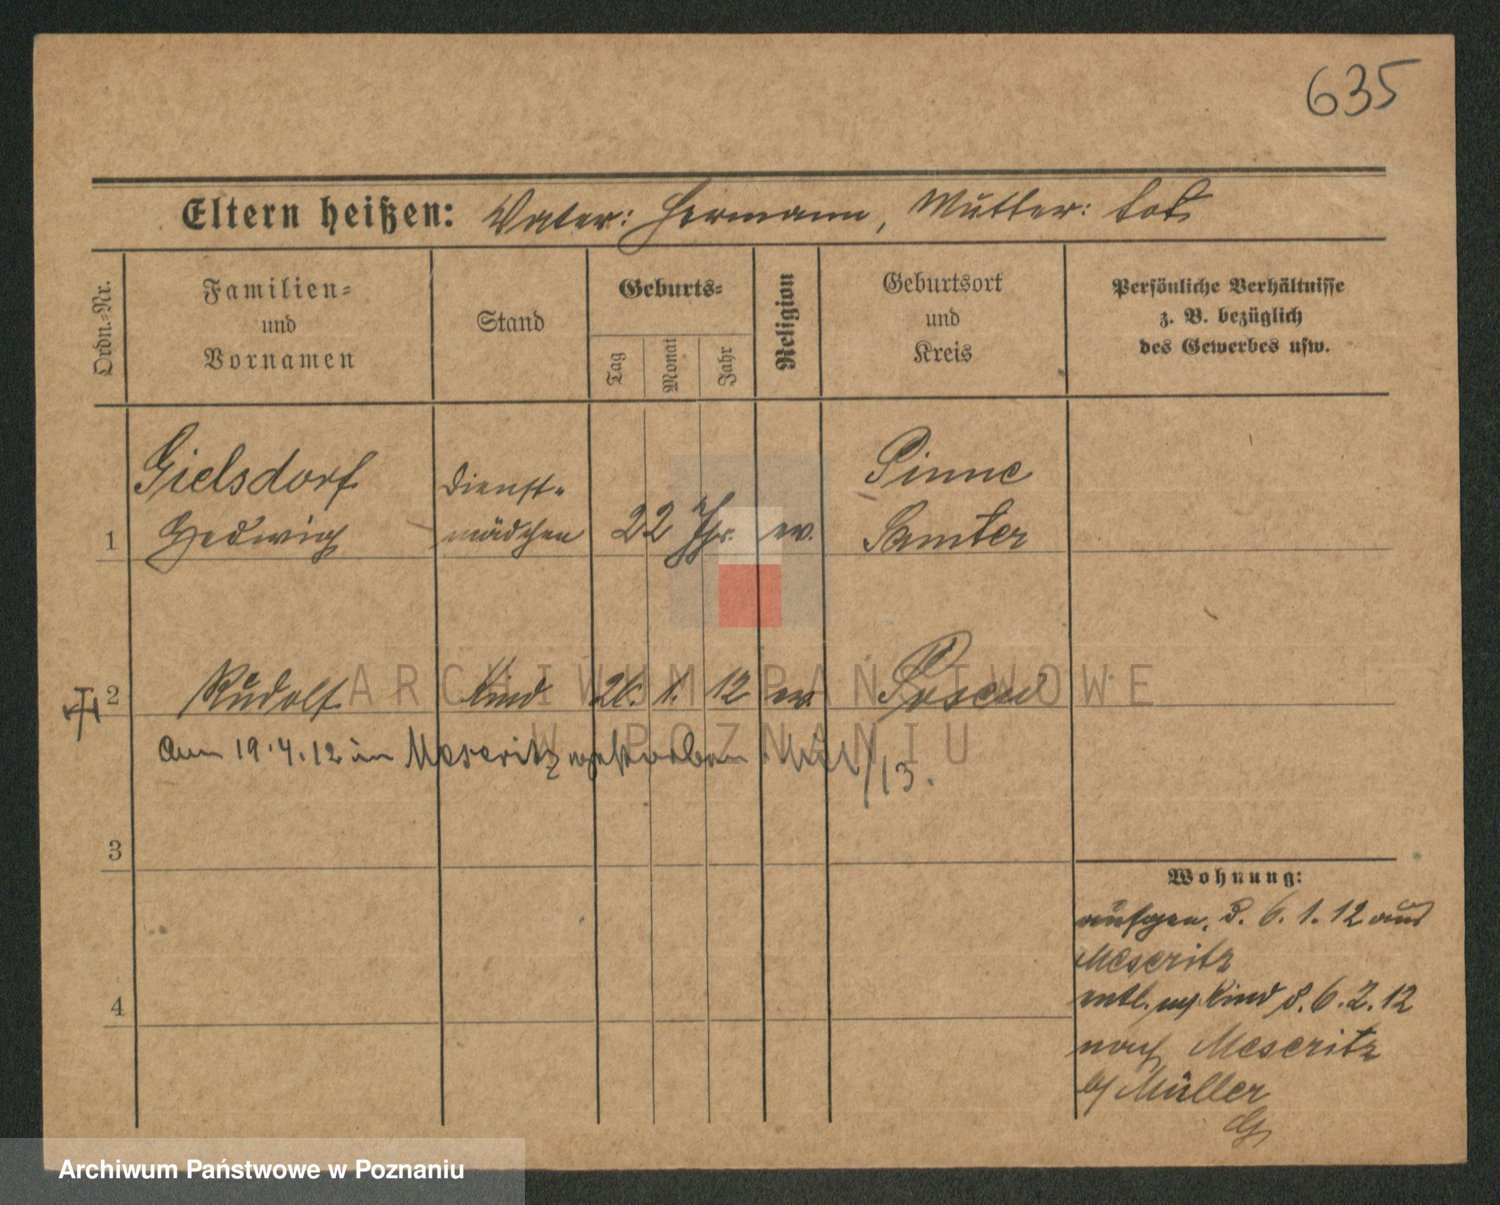 635
Eltern heißen: Vater: Hermann, Mutter: tot
Ordn.-Nr.
Familien-
und
Vornamen
Stand
Geburts-
Tag
Monat
Jahr
Religion
Geburtsort
und
Kreis
Persönliche Verhältnisse
z. B. bezüglich
des Gewerbes usw.
Gielsdorf
Dienst-
Pinne
1 Hedwig
mädchen
22 Jhr. ev.
Samter
2 Rudolf Kind 21. 1. 12 ev. Posen
ARCHIWUM PAŃSTWOWE
W POZNANIU
Am 19.4.12 in Meseritz gestorben. /13.
3
4
Wohnung:
aufgen. d. 6.1.12 aus
Meseritz
entl. m/ Kind d. 6.2.12
nach Meseritz
b/ Müller
Archiwum Państwowe w Poznaniu